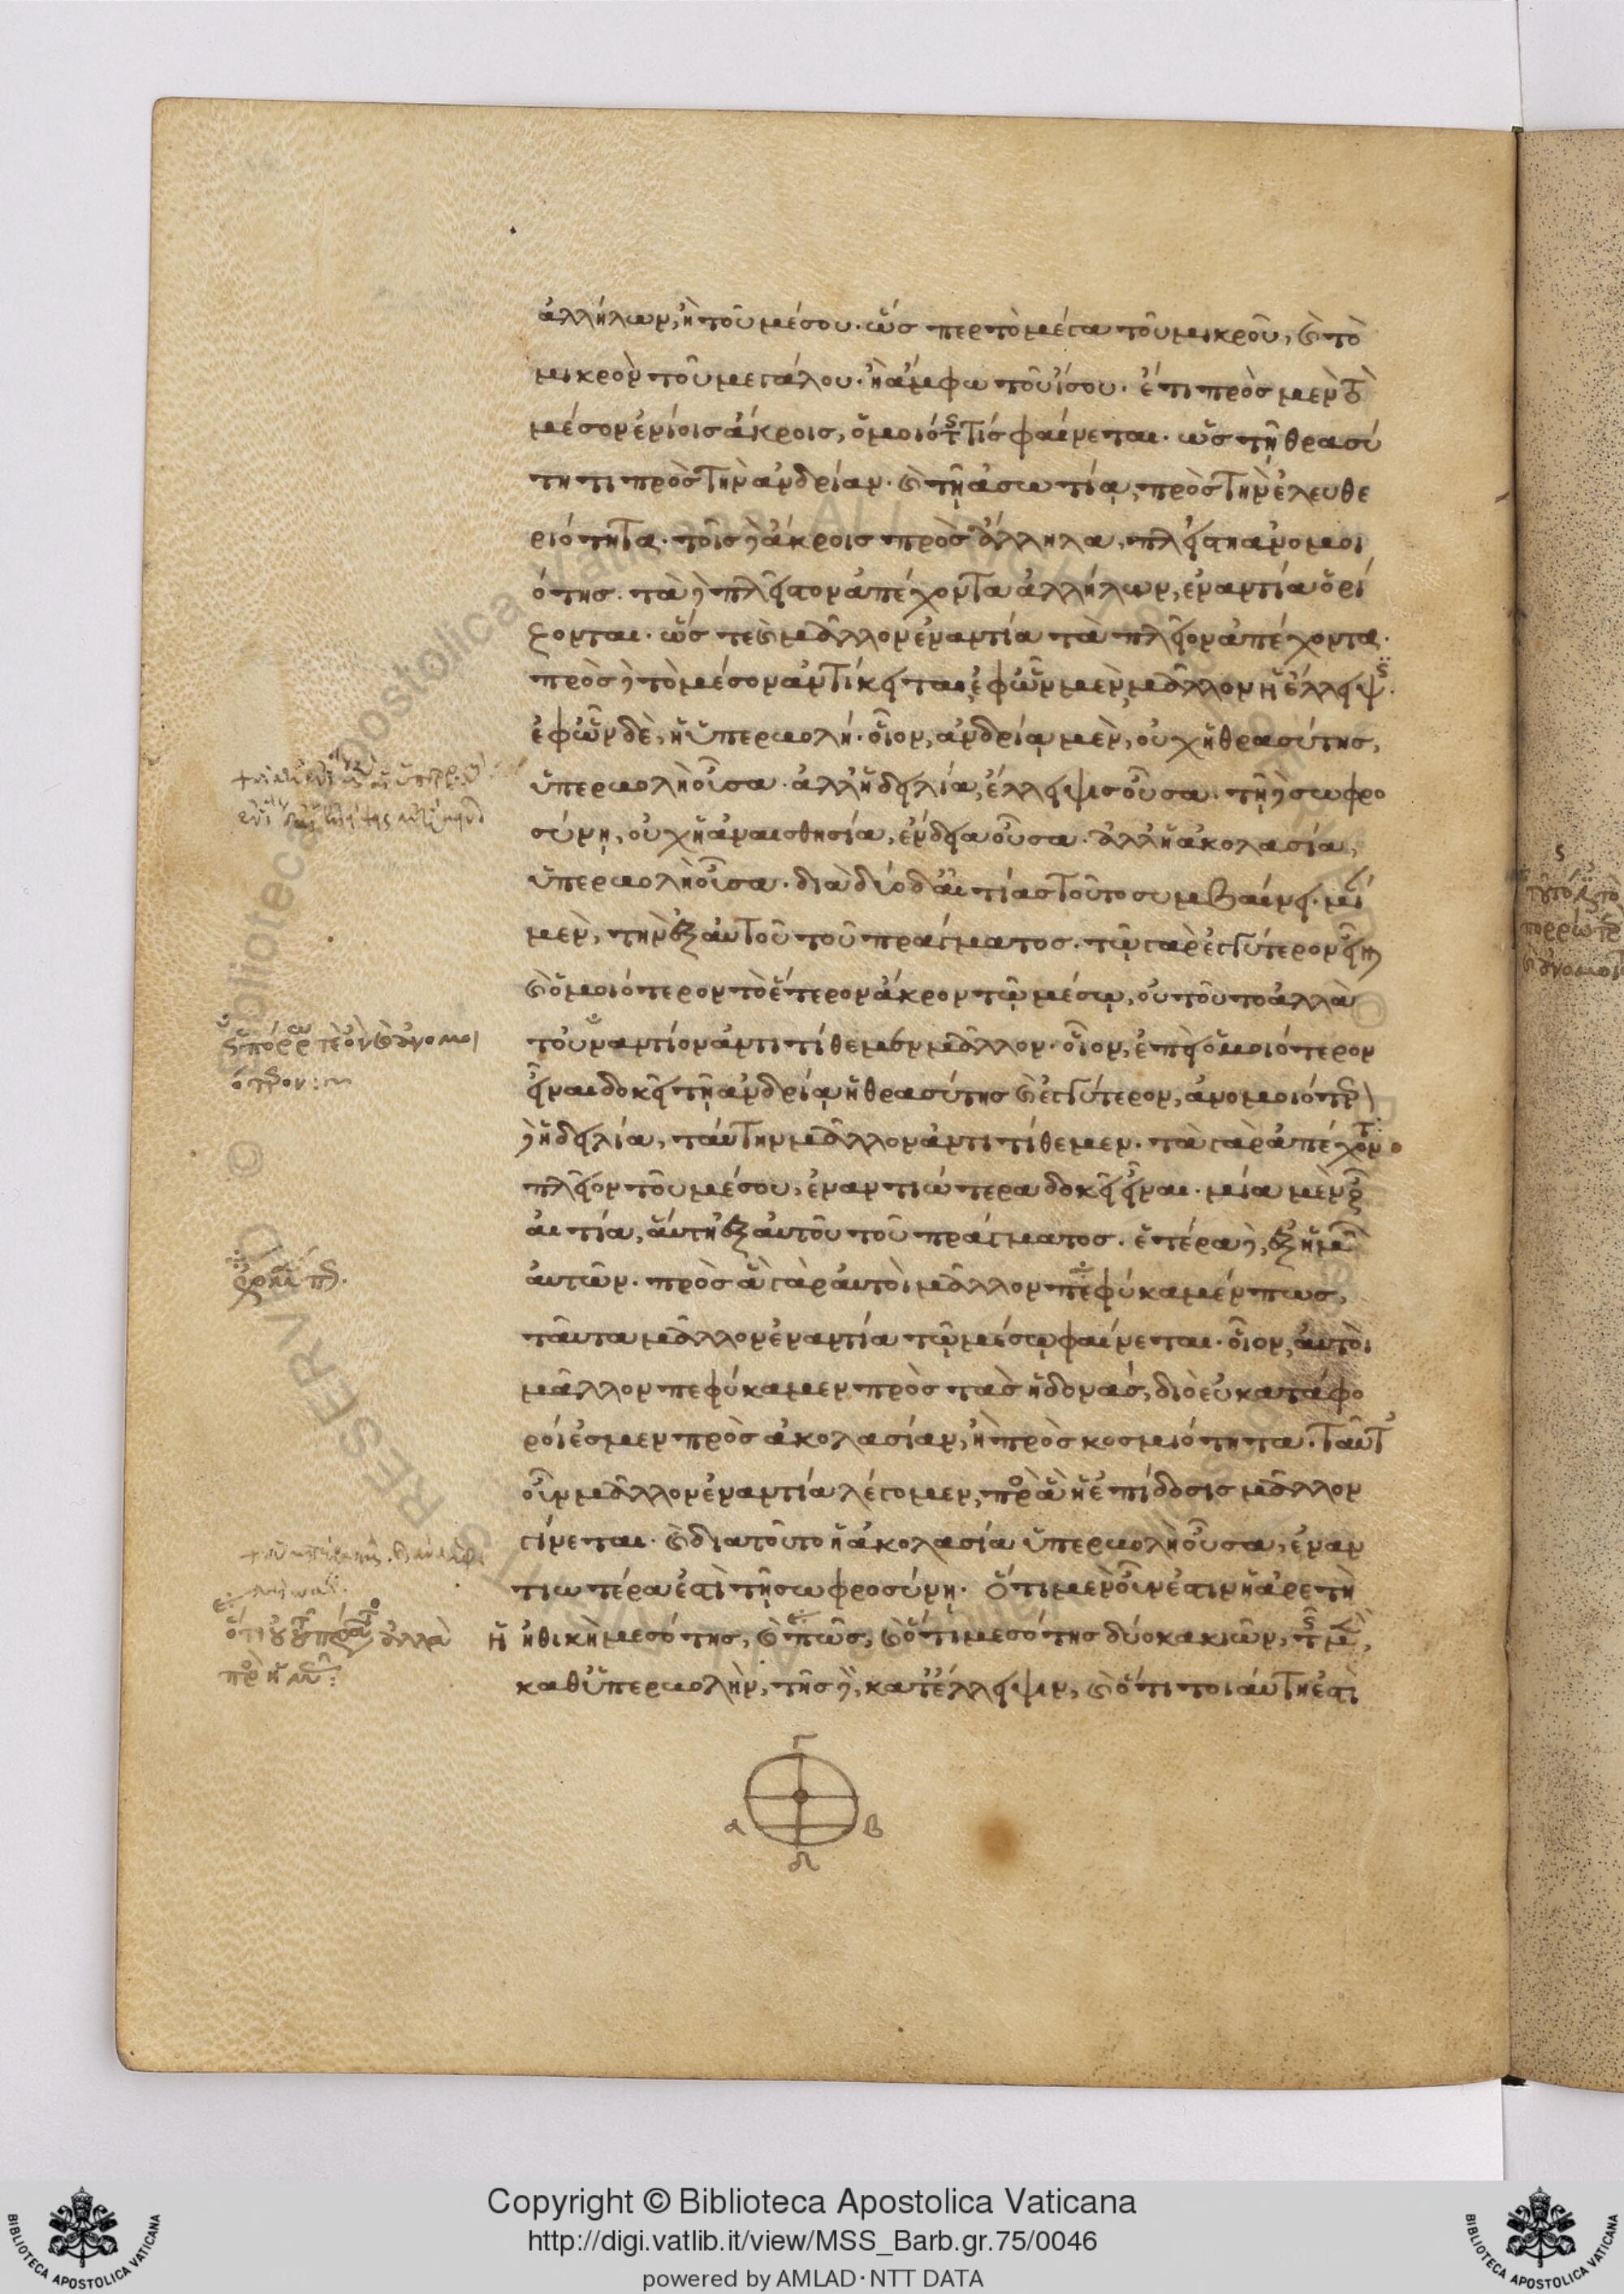 ἀλλήλων, ἢ τοῦ μέσου· ὥσπερ τὸ μέγα τοῦ μικροῦ, καὶ τὸ
μικρὸν τοῦ μεγάλου· ἢ ἄμφω τοῦ ἴσου· ἔτι πρὸς μὲν τὸ
μέσον ἐνίοις ἄκροις, ὁμοιότης τίς φαίνεται· ὡς τῇ θρασύ
τητι πρὸς τὴν ἀνδρίαν· καὶ τῇ ἀσωτίᾳ, πρὸς τὴν ἐλευθε
ριότητα· τοῖς δὲ ἄκροις πρὸς ἄλληλα, πλείστη ἀνομοι
ότης· τὰ δὲ πλεῖστον ἀπέχοντα ἀλλήλων, ἐναντία ὁρί
ζονται· ὥστε καὶ μᾶλλον ἐναντία τὰ πλεῖον ἀπέχοντα·
πρὸς δὲ τὸ μέσον ἀντίκειται, ἐφ' ὧν μὲν μᾶλλον ἡ ἔλλειψις·
ἐφ' ὧν δὲ, ἡ ὑπερβολή· οἷον, ἀνδρίᾳ μὲν, οὐχ ἡ θρασύτης,
ὑπερβολὴ οὖσα· ἀλλ' ἡ δειλία, ἔλλειψις οὖσα· τῇ δὲ σωφρο
σύνῃ, οὐχ ἡ ἀναισθησία, ἔνδεια οὖσα· ἀλλ' ἡ ἀκολασία,
ὑπερβολὴ οὖσα· διὰ δύο δ' αἰτίας τοῦτο συμβαίνει· μίαν
μὲν, τὴν ἐξ αὐτοῦ τοῦ πράγματος· τῷ γὰρ ἐγγύτερον εἶναι
καὶ ὁμοιότερον τὸ ἕτερον ἄκρον τῷ μέσῳ, οὐ τοῦτο ἀλλὰ
τοὐναντίον ἀντιτίθεμεν μᾶλλον· οἷον, ἐπεὶ ὁμοιότερον
εἶναι δοκεῖ τῇ ἀνδρίᾳ ἡ θρασύτης καὶ ἐγγύτερον, ἀνομοιότερον
δὲ ἡ δειλία, ταύτην μᾶλλον ἀντιτίθεμεν· τὰ γὰρ ἀπέχοντα
πλεῖον τοῦ μέσου, ἐναντιώτερα δοκεῖ εἶναι· μία μὲν οὖν
αἰτία, αὕτη ἐξ αὐτοῦ τοῦ πράγματος· ἑτέρα δὲ, ἐξ ἡμῶν
αὐτῶν· πρὸς ἃ γὰρ αὐτοὶ μᾶλλον πεφύκαμέν πως,
ταῦτα μᾶλλον ἐναντία τῷ μέσῳ φαίνεται· οἷον, αὐτοὶ
μᾶλλον πεφύκαμεν πρὸς τὰς ἡδονάς, διὸ εὐκατάφο
ροί ἐσμεν πρὸς ἀκολασίαν, ἢ πρὸς κοσμιότητα· ταῦτ'
οὖν μᾶλλον ἐναντία λέγομεν, πρὸς ἃ ἡ ἐπίδοσις μᾶλλον
γίνεται· καὶ διατοῦτο ἡ ἀκολασία ὑπερβολὴ οὖσα, ἐναν
τιωτέρα ἐστὶ τῇ σωφροσύνῃ· Ὅτι μὲν οὖν ἐστιν ἡ ἀρετὴ
ἡ ἠθικὴ μεσότης, καὶ πῶς, καὶ ὅτι μεσότης δύο κακιῶν, τῆς μὲν,
καθ' ὑπερβολὴν, τῆς δὲ, κατ' ἔλλειψιν, καὶ ὅτι τοιαύτη ἐστὶ
Γ
α β
Δ
Copyright © Biblioteca Apostolica Vaticana
http://digi.vatlib.it/view/MSS_Barb.gr.75/0046
powered by AMLAD·NTT DATA
BIBLIOTECA APOSTOLICA VATICANA
BIBLIOTECA APOSTOLICA VATICANA